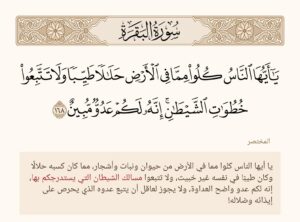 سُورَةُ البَقَرَةِ
يَٰٓأَيُّهَا ٱلنَّاسُ كُلُواْ مِمَّا فِي ٱلۡأَرۡضِ حَلَٰلٗا طَيِّبٗا وَلَا تَتَّبِعُواْ
خُطُوَٰتِ ٱلشَّيۡطَٰنِۚ إِنَّهُۥ لَكُمۡ عَدُوّٞ مُّبِينٌ ١٦٨
المختصر
يا أيها الناس كلوا مما في الأرض من حيوان ونبات وأشجار، مما كان كسبه حلالًا
وكان طيبًا في نفسه غير خبيث، ولا تتبعوا مسالك الشيطان التي يستدرجكم بها،
إنه لكم عدو واضح العداوة، ولا يجوز لعاقل أن يتبع عدوه الذي يحرص على
إيذائه وضلاله!